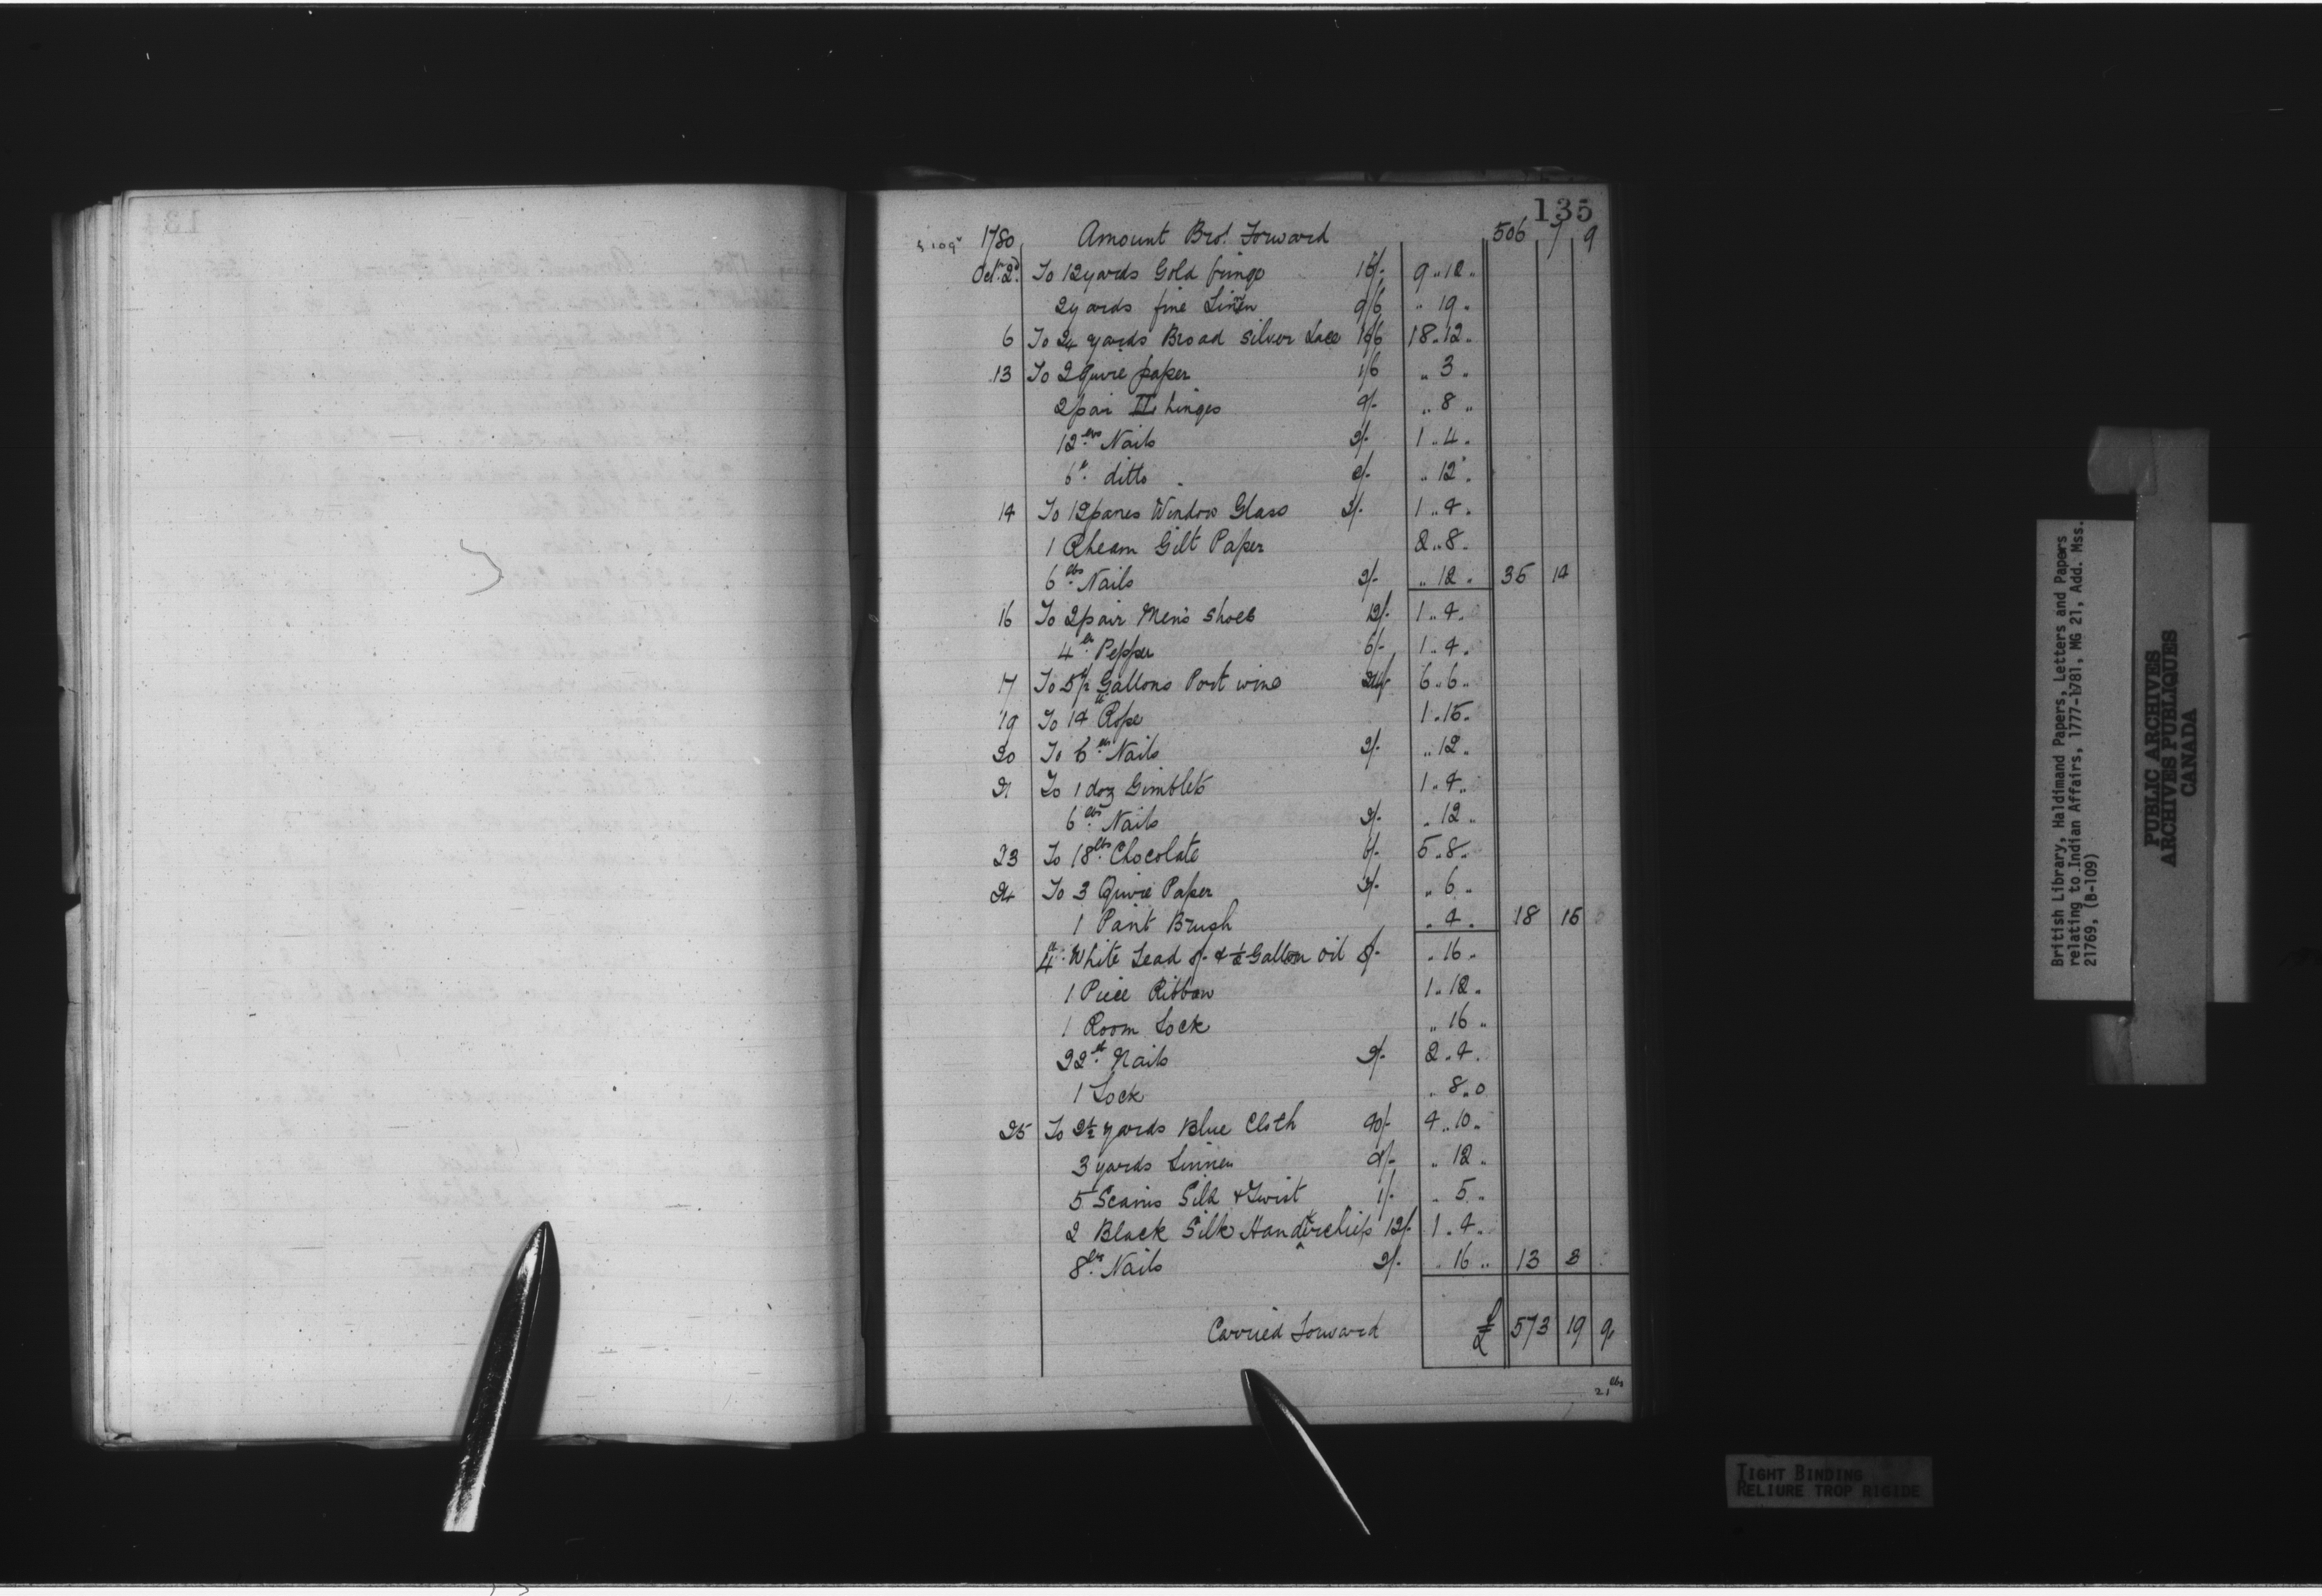 135
1780 Amount Bro.t Forward 506 7 9
Oct.r 2d To 12 yards Gold fringe 16/. 9 .. 12 ..
2 yards fine Linen 9/6 .. 19 ..
6 To 24 yards Broad Silver Lace 15/6 18 .. 12 ..
13 To 2 Quire paper 1/6 .. 3 ..
2 pair H hinges 4/. .. 8 ..
12 lbs Nails 2/. 1 .. 4 ..
6 lb ditto 2/. .. 12 ..
14 To 12 panes Window Glass 2/. 1 .. 4 ..
1 Rheam Gilt Paper 2 .. 8 ..
6 lbs Nails 2/. .. 12 .. 35 14
16 To 2 pair Mens Shoes 12/. 1 .. 4 ..
4 lb Pepper 6/. 1 .. 4 ..
17 To 5 1/4 Gallons Port wine 24/. 6 .. 6 ..
19 To 14 lb Rope 1 .. 15 ..
20 To 6 lbs Nails 2/. .. 12 ..
21 To 1 doz Gimblets 1 .. 4 ..
6 lbs Nails 2/. .. 12 ..
23 To 18 lbs Chocolate 6/. 5 .. 8 ..
24 To 3 Quire Paper 2/. .. 6 ..
1 Paint Brush .. 4 .. 18 15
4 lb White Lead 8/. & 1/2 Gallon oil 8/. .. 16 ..
1 Piece Ribbon 1 .. 12 ..
1 Room Lock .. 16 ..
22 lb Nails 2/. 2 .. 4 ..
1 Lock .. 8 .. 0
25 To 2 1/4 yards Blue Cloth 40/. 4 .. 10 ..
3 yards Linnen 4/. .. 12 ..
5 Scains Silk & Twist 1/. .. 5 ..
2 Black Silk Handkerchiefs 12/. 1 .. 4 ..
8 lbs Nails 2/. .. 16 .. 13 3
Carried Forward £ 573 19 9
21 lbs
British Library, Haldimand Papers, Letters and Papers
relating to Indian Affairs, 1777-1781, MG 21, Add. Mss.
21769, (B-109)
PUBLIC ARCHIVES
ARCHIVES PUBLIQUES
CANADA
TIGHT BINDING
RELIURE TROP RIGIDE